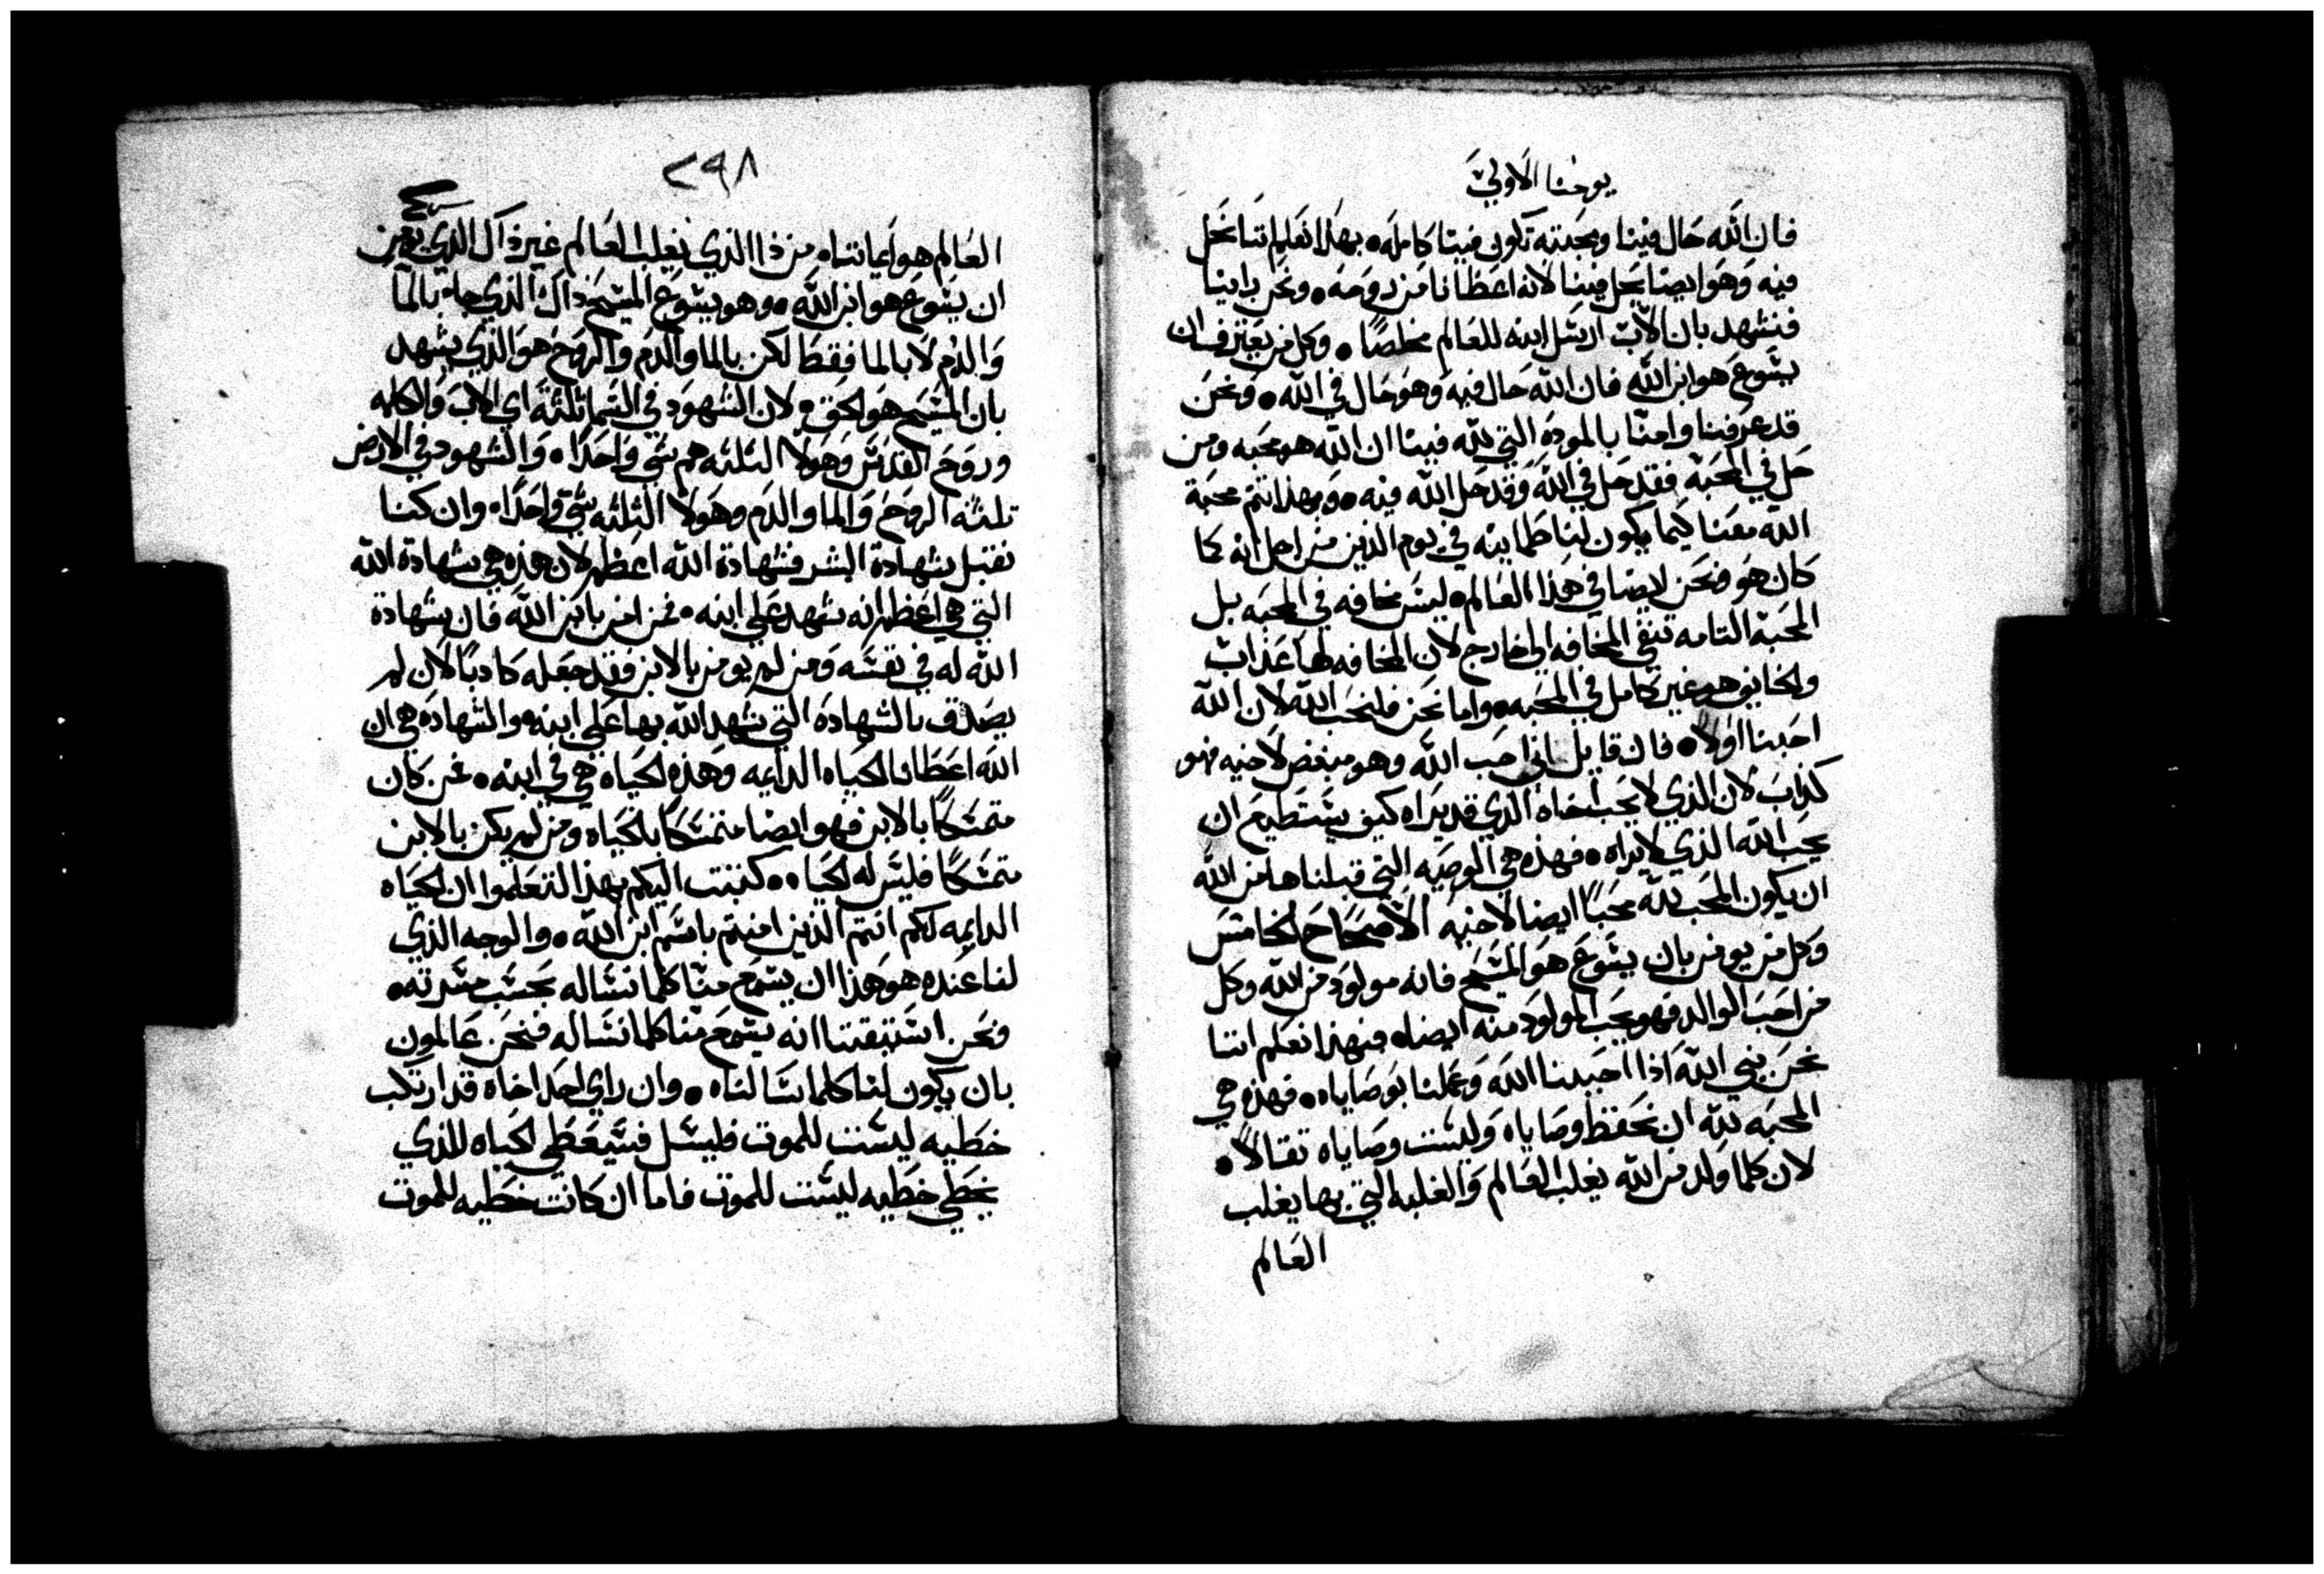 يوحنا الاولي
فان الله حال فينا ومحبته تكون فينا كامله • بهذا نعلم اننا نحل
فيه وهو ايضا يحل فينا لانه اعطانا من روحه • ونحن راينا
فنشهد بان الاب ارسل ابنه للعالم مخلصًا • وكل من يعترف ان
يشوع هو ابن الله فان الله حال فيه وهو حال في الله • ونحن
قد عرفنا وامنا بالموده التي لله فينا ان الله هو محبه ومن
حل في المحبه فقد حل في الله وقد حل الله فيه • وبهذا تتم محبة
الله معنا كيما يكون لنا طمانينه في يوم الدين من اجل انه كما
كان هو فنحن ايضا في هذا العالم • ليس مخافه في المحبه بل
المحبة التامه تنفي المخافه الي خارج لان المخافه لها عذاب
والخايف هو غير كامل في المحبه • واما نحن فلنحب الله لان الله
احبنا اولا • فان قايل اني احب الله وهو مبغض لاخيه فهو
كذاب لان الذي لا يحب اخاه الذي قد يراه كيف يستطيع ان
يحب الله الذي لا يراه • فهذه هي الوصيه التي قبلناها من الله
ان يكون المحب لله محبًا ايضا لاخيه الاصحاح الخامس
وكل من يومن بان يشوع هو المسيح فانه مولود من الله وكل
من احب الوالد فهو يحب المولود منه ايضا • فبهذا نعلم اننا
نحن بني الله اذا احببنا الله وعملنا بوصاياه • فهذه هي
المحبه لله ان نحفظ وصاياه وليست وصاياه تقالا •
لان كلما ولد من الله يغلب العالم والغلبه التي بها يغلب
العالم
٢٩٨
العالم هو ايماننا • من ذا الذي يغلب العالم غير ذاك الذي يومن
ان يشوع هو ابن الله • وهو يشوع المسيح ذاك الذي جاء بالما
والدم لا بالما فقط لكن بالما والدم والروح هو الذي يشهد
بان المسيح هو الحق • لان الشهود في السما ثلثة اي الاب والكلمه
وروح القدس وهولا الثلثه هم شي واحدا • والشهود في الارض
ثلثه الروح والما والدم وهولا الثلثه شي واحدا • وان كنا
نقبل شهادة البشر فشهادة الله اعظم لان هذه هي شهادة الله
التي هي اعظم انه شهد علي ابنه • فمن امن بابن الله فان شهادة
الله له في نفسه ومن لم يومن بالابن فقد جعله كادبًا لان لم
يصدق بالشهادة التي شهد الله بها علي ابنه • والشهادة هي ان
الله اعطانا الحياه الدايمه وهذه الحياه هي في ابنه • فمن كان
متمسكًا بالابن فهو ايضا متمسكا بالحياه ومن لم يكن بالابن
متمسكًا فليس له الحياه • كتبت اليكم بهذا لتعلموا ان الحياه
الدايمه لكم انتم الذين امنتم باسم ابن الله • والوجه الذي
لنا عنده هو هذا ان يسمع منا كلما نساله بحسب مسرته •
ونحن استتيقنا انه يسمع منا كلما نساله فنحن عالمون
بان يكون لنا كلما سالناه • وان راي احد اخاه قد ارتكب
خطيه ليست للموت فليسل فسيعطي الحياه للذي
يخطي خطيه ليست للموت فاما ان كانت خطيه للموت